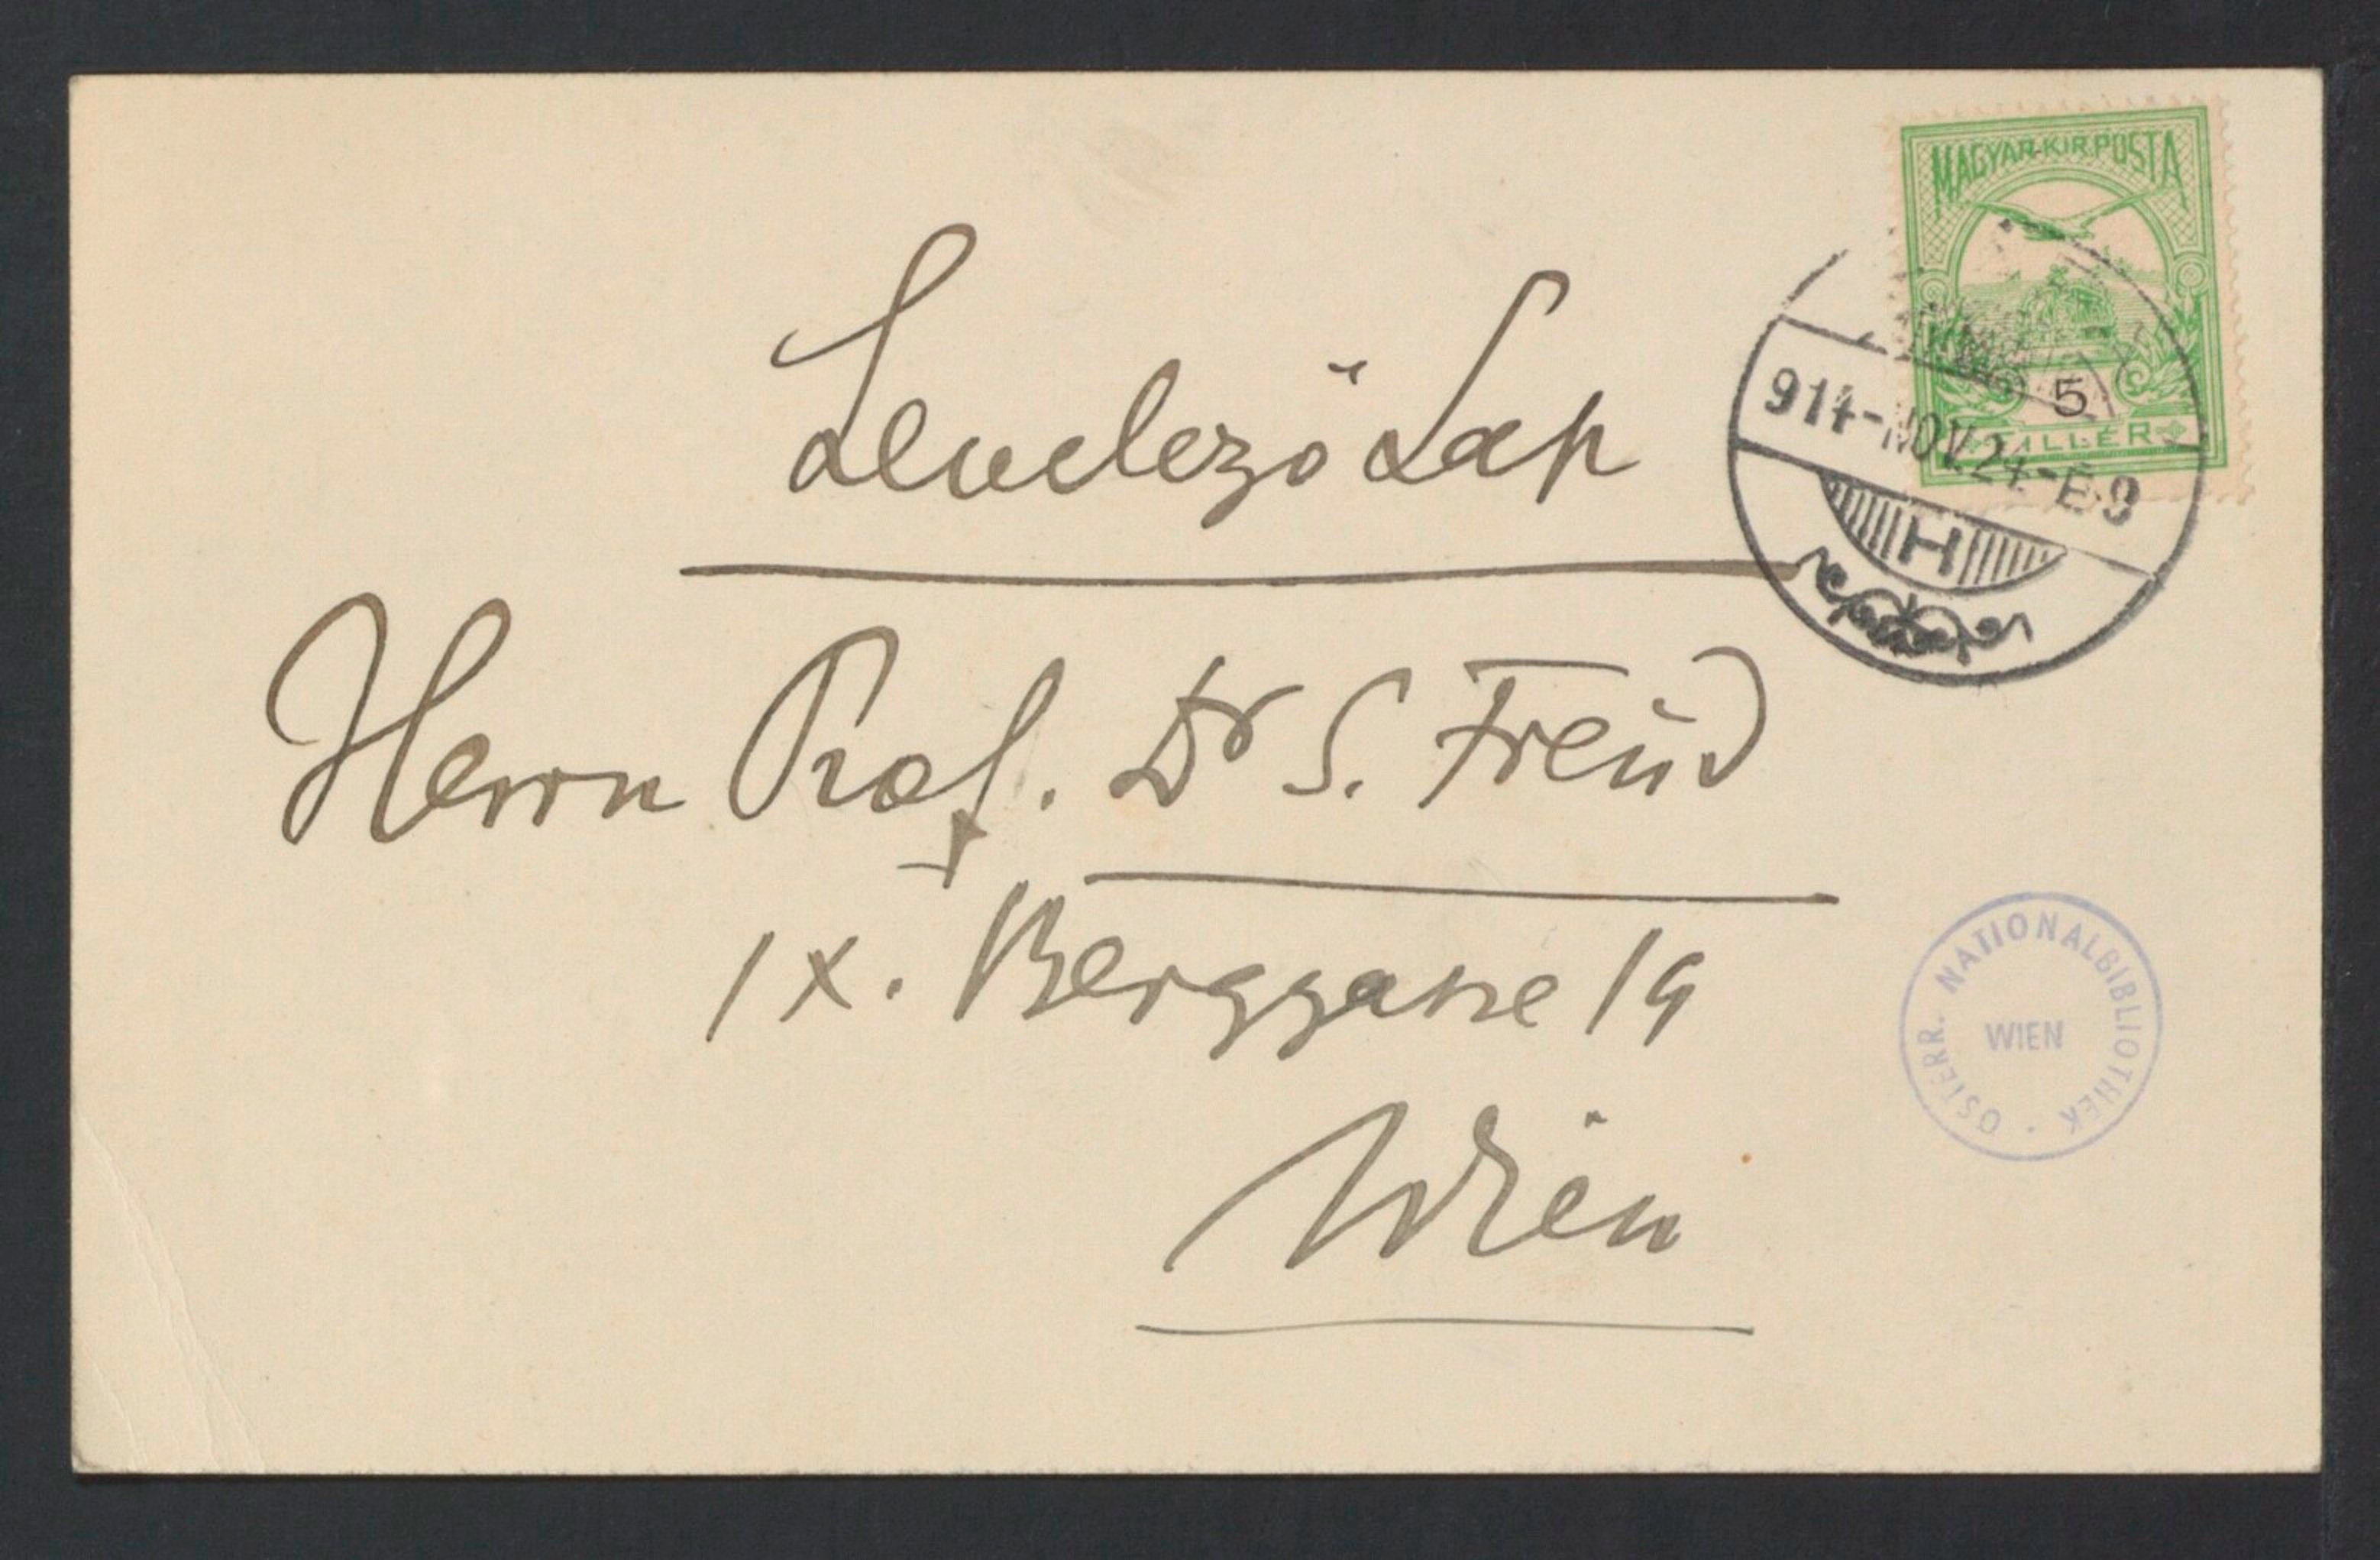 MAGYAR·KIR·POSTA
5
914-NOV.24-E·9
H
Levelező Lap
Herrn Prof. Dr S. Freud
IX. Berggasse 19
Wien
ÖSTERR. NATIONALBIBLIOTHEK ·
WIEN